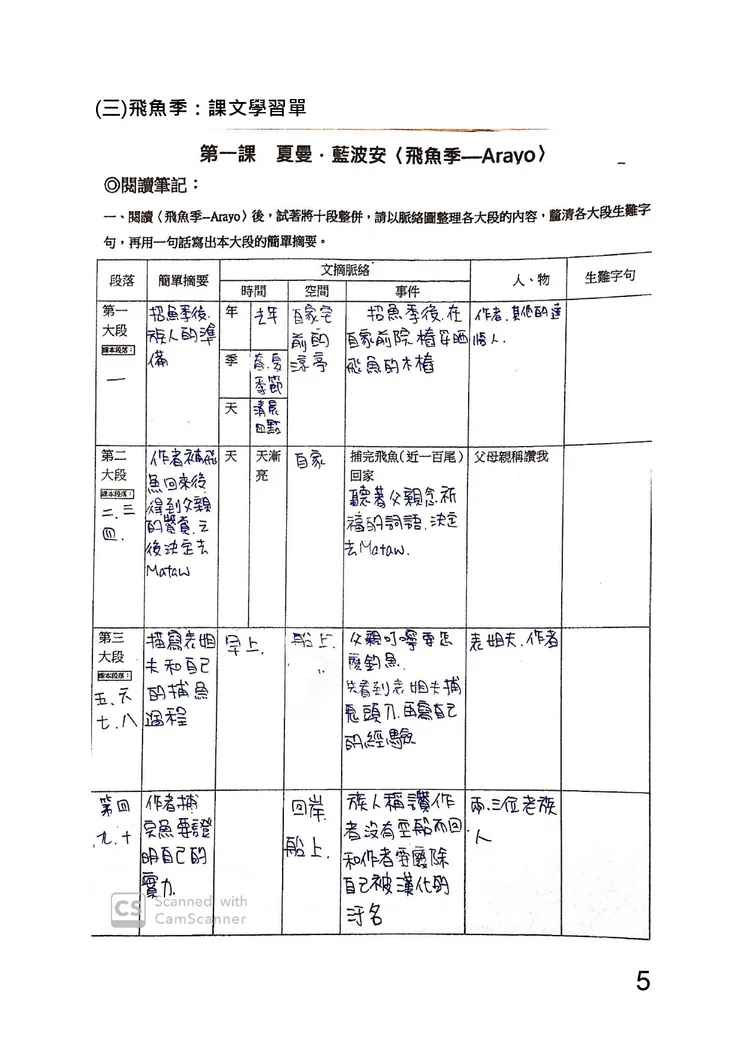 (三)飛魚季：課文學習單
第一課　夏曼．藍波安〈飛魚季—Arayo〉
◎閱讀筆記：
一、閱讀〈飛魚季–Arayo〉後，試著將十段整併，請以脈絡圖整理各大段的內容，釐清各大段生難字
句，再用一句話寫出本大段的簡單摘要。
段落 簡單摘要 文摘脈絡 人、物 生難字句
時間 空間 事件
第一
大段
課本段落：
一
招魚季後.
族人的準
備
年 去年
季 春.夏
季節
天 清晨
四點
自家宅
前的
涼亭
招魚季後.在
自家前院.樁妥晒
飛魚的木樁
作者.其他的達
悟人.
第二
大段
課本段落：
二.三
四.
作者捕飛
魚回來後
得到父親
的讚賞.之
後決定去
Mataw
天 天漸
亮
自家
捕完飛魚(近一百尾)
回家
聽著父親念祈
福的詞語.決定
去Mataw.
父母親稱讚我
第三
大段
課本段落：
五、六
七、八
描寫表姐
夫和自己
的捕魚
過程
早上.
船上.
父親叮嚀要怎
麼釣魚.
先看到表姐夫捕
鬼頭刀.再寫自己
的經驗
表姐夫.作者
第四
九、十
作者捕
完魚要證
明自己的
實力.
回岸
船上.
族人稱讚作
者沒有空船而回
和作者要廢除
自己被漢化的
汙名
兩.三位老族
人
CS Scanned with
CamScanner
5